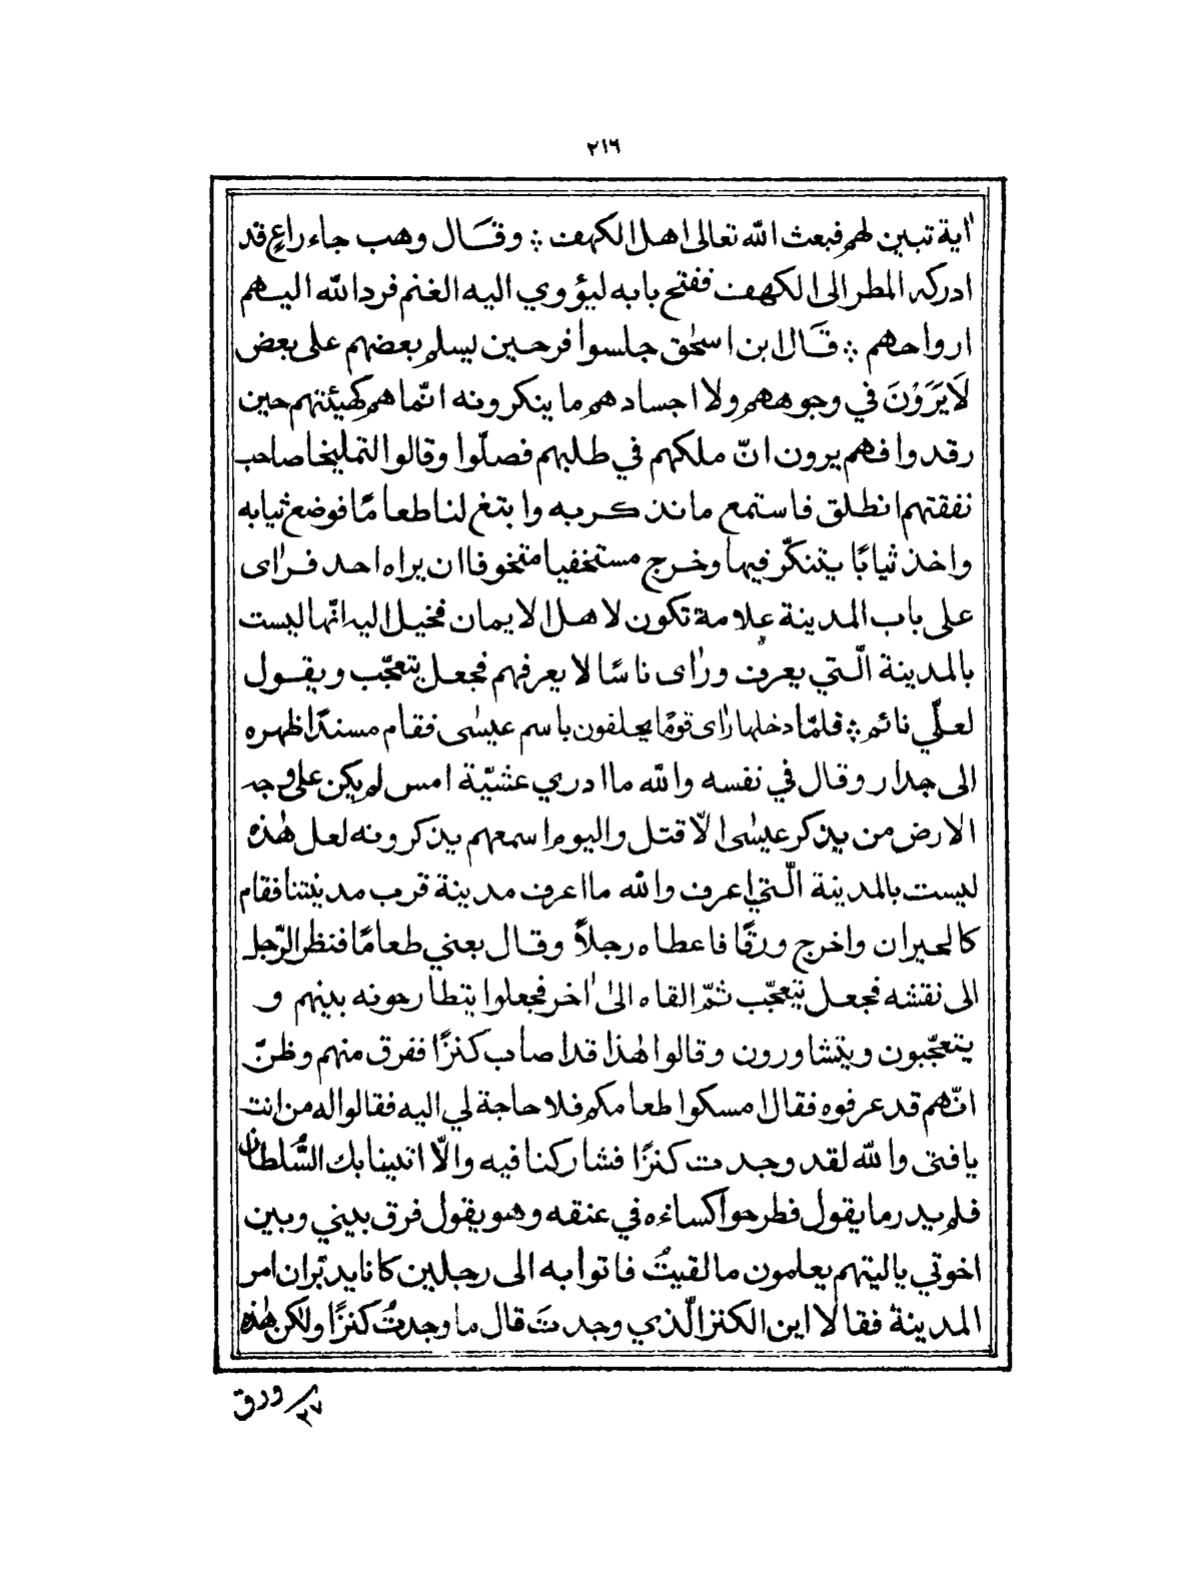 ٢١٦
اٰية تبين لهم فبعث الله تعالى اهل الكهف ؞ وقال وهب جاء راعٍ قد
ادركه المطر الى الكهف ففتح بابه ليؤوي اليه الغنم فرد الله اليهم
ارواحهم ؞ قَال ابن اسحٰق جلسوا فرحين يسلم بعضهم على بعض
لَا يَرَوْنَ في وجوههم ولا اجسادهم ما ينكرونه انّما هم كهيئتهم حين
رقدوا فهم يرون انّ ملكهم في طلبهم فصلّوا وقالوا لتمليخا صاحب
نفقتهم انطلق فاستمع ما نذكر به وابتغ لنا طعامًا فوضع ثيابه
واخذ ثيابًا يتنكّر فيها وخرج مستخفيا متخوفا ان يراه احد فراٰى
على باب المدينة علامة تكون لاهل الايمان فخيل اليه انّها ليست
بالمدينة الّتي يعرف وراٰى ناسًا لا يعرفهم فجعل يتعجّب ويقول
لعلّي نائم ؞ فلمّا دخلها راٰى قومًا يحلفون باسم عيسٰى فقام مسندًا ظهره
الى جدار وقال في نفسه والله ما ادري عشيّة امس لم يكن على وجه
الارض من يذكر عيسٰى الّا قتل واليوم اسمعهم يذكرونه لعل هٰذه
ليست بالمدينة الّتي اعرف والله ما اعرف مدينة قرب مدينتنا فقام
كالحيران واخرج ورقًا فاعطاه رجلاً وقال بعني طعامًا فنظر الرّجل
الى نقشه فجعل يتعجّب ثمّ القاه الىٰ اٰخر فجعلوا يتطارحونه بينهم و
يتعجّبون ويتشاورون وقالوا هٰذا قد اصاب كنزًا ففرق منهم وظنّ
انّهم قد عرفوه فقال امسكوا طعامكم فلا حاجة لي اليه فقالوا له من انت
يا فتى والله لقد وجدت كنزًا فشاركنا فيه والّا اتينا بك السُّلطان
فلم يدر ما يقول فطرحوا كساءه في عنقه وهو يقول فرق بيني وبين
اخوتي ياليتهم يعلمون ما لقيتُ فاتوا به الى رجلين كانا يدبّران امر
المدينة فقالا اين الكنز الّذي وجدتَ قال ما وجدتُ كنزًا ولكن هٰذه
ورق
٢٧